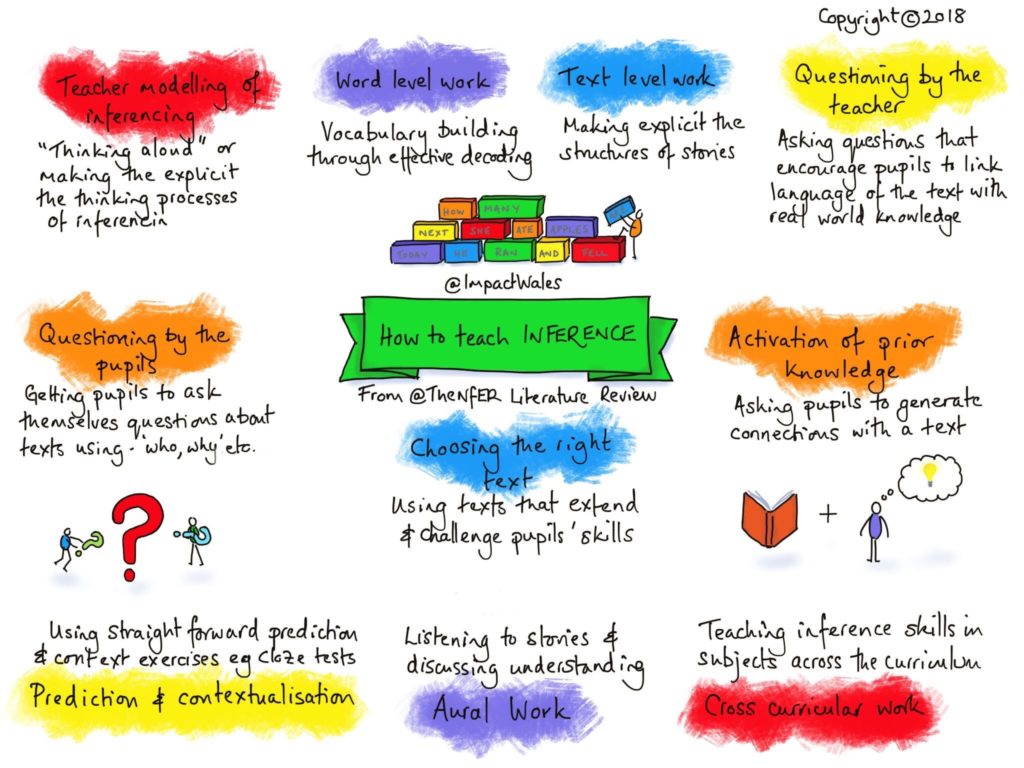 Copyright©2018
Teacher modelling of
inferencing
"Thinking aloud" or
making the explicit
the thinking processes
of inferencin
Word level work
Vocabulary building
through effective decoding
Text level work
Making explicit the
structures of stories
Questioning by the
teacher
Asking questions that
encourage pupils to link
language of the text with
real world knowledge
HOW MANY
NEXT SHE ATE APPLES
TODAY HE RAN AND FELL
@ImpactWales
How to teach INFERENCE
From @TheNfER Literature Review
Questioning by the
pupils
Getting pupils to ask
themselves questions about
texts using - 'who, why' etc.
?
Choosing the right
text
Using texts that extend
& challenge pupils' skills
Activation of prior
knowledge
Asking pupils to generate
connections with a text
+
Using straight forward prediction
& context exercises eg Cloze tests
Prediction & contextualisation
Listening to stories &
discussing understanding
Aural Work
Teaching inference skills in
subjects across the curriculum
Cross curricular work